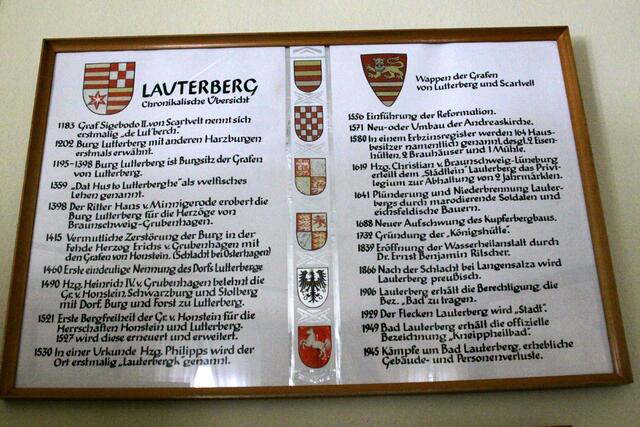 LAUTERBERG
Chronikalische Übersicht
1183 Graf Sigebodo II. von Scartvelt nennt sich
erstmalig „de Lut'berch".
1202 Burg Lutterberg mit anderen Harzburgen
erstmals erwähnt.
1195-1398 Burg Lutterberg ist Burgsitz der Grafen
von Lutterberg.
1359 „Dat Hus to Lutterberghe" als welfisches
Lehen genannt.
1398 Der Ritter Hans v. Minnigerode erobert die
Burg Lutterberg für die Herzöge von
Braunschweig-Grubenhagen.
1415 Vermutliche Zerstörung der Burg in der
Fehde Herzog Erichs v. Grubenhagen mit
den Grafen von Honstein. (Schlacht bei Osterhagen)
1460 Erste eindeutige Nennung des Dorfs Lutterberge
1490 Hzg. Heinrich IV. v. Grubenhagen belehnt die
Gr. v. Honstein Schwarzburg und Stolberg
mit Dorf, Burg und Forst zu Lutterberg.
1521 Erste Bergfreiheit der Gr. v. Honstein für die
Herrschaften Honstein und Lutterberg.
1527 wird diese erneuert und erweitert.
1530 In einer Urkunde Hzg. Philipps wird der
Ort erstmalig „Lauterbergk" genannt.
Wappen der Grafen
von Lutterberg und Scartvelt
1556 Einführung der Reformation.
1571 Neu- oder Umbau der Andreaskirche.
1580 In einem Erbzinsregister werden 164 Haus-
besitzer namentlich genannt, desgl. 2 Eisen-
hütten, 2 Brauhäuser und 1 Mühle.
1619 Hzg. Christian v. Braunschweig-Lüneburg
erteilt dem „Städtlein" Lauterberg das Privi-
legium zur Abhaltung von 2 Jahrmärkten.
1641 Plünderung und Niederbrennung Lauter-
bergs durch marodierende Soldaten und
eichsfeldische Bauern.
1688 Neuer Aufschwung des Kupferbergbaus.
1732 Gründung der „Königshütte".
1839 Eröffnung der Wasserheilanstalt durch
Dr. Ernst Benjamin Ritscher.
1866 Nach der Schlacht bei Langensalza wird
Lauterberg preußisch.
1906 Lauterberg erhält die Berechtigung, die
Bez. „Bad" zu tragen.
1929 Der Flecken Lauterberg wird „Stadt".
1949 Bad Lauterberg erhält die offizielle
Bezeichnung „Kneippheilbad".
1945 Kämpfe um Bad Lauterberg, erhebliche
Gebäude- und Personenverluste.